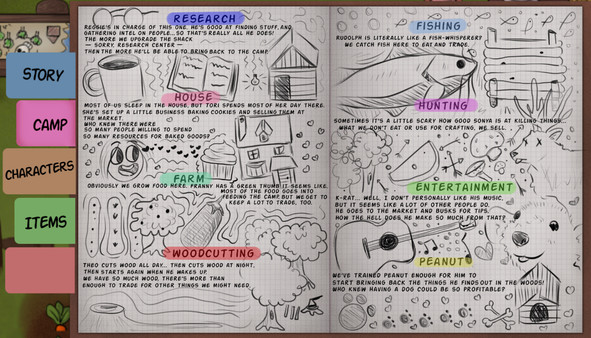 STORY
CAMP
CHARACTERS
ITEMS
RESEARCH
REGGIE'S IN CHARGE OF THIS ONE. HE'S GOOD AT FINDING STUFF AND
GATHERING INTEL ON PEOPLE...SO THAT'S REALLY ALL HE DOES!
THE MORE WE UPGRADE THE SHACK
— SORRY RESEARCH CENTER —
THEN THE MORE HE'LL BE ABLE TO BRING BACK TO THE CAMP.
HOUSE
MOST OF US SLEEP IN THE HOUSE, BUT TORI SPENDS MOST OF HER DAY THERE.
SHE'S SET UP A LITTLE BUSINESS BAKING COOKIES AND SELLING THEM AT
THE MARKET.
WHO KNEW THERE WERE
SO MANY PEOPLE WILLING TO SPEND
SO MANY RESOURCES FOR BAKED GOODS?
FARM
OBVIOUSLY WE GROW FOOD HERE. FRANNY HAS A GREEN THUMB IT SEEMS LIKE.
MOST OF THE FOOD GOES INTO
FEEDING THE CAMP BUT WE GET TO
KEEP A LOT TO TRADE, TOO.
WOODCUTTING
THEO CUTS WOOD ALL DAY... THEN CUTS WOOD AT NIGHT,
THEN STARTS AGAIN WHEN HE WAKES UP.
WE HAVE SO MUCH WOOD, THERE'S MORE THAN
ENOUGH TO TRADE FOR OTHER THINGS WE MIGHT NEED.
FISHING
RUDOLPH IS LITERALLY LIKE A FISH-WHISPERER?
WE CATCH FISH HERE TO EAT AND TRADE.
HUNTING
SOMETIMES IT'S A LITTLE SCARY HOW GOOD SONYA IS AT KILLING THINGS...
WHAT WE DON'T EAT OR USE FOR CRAFTING, WE SELL.
ENTERTAINMENT
K-RAT... WELL, I DON'T PERSONALLY LIKE HIS MUSIC,
BUT IT SEEMS LIKE A LOT OF OTHER PEOPLE DO.
HE GOES TO THE MARKET AND BUSKS FOR TIPS.
HOW THE HELL DOES HE MAKE SO MUCH FROM THAT?
PEANUT
WE'VE TRAINED PEANUT ENOUGH FOR HIM TO
START BRINGING BACK THE THINGS HE FINDS OUT IN THE WOODS!
WHO KNEW HAVING A DOG COULD BE SO PROFITABLE?